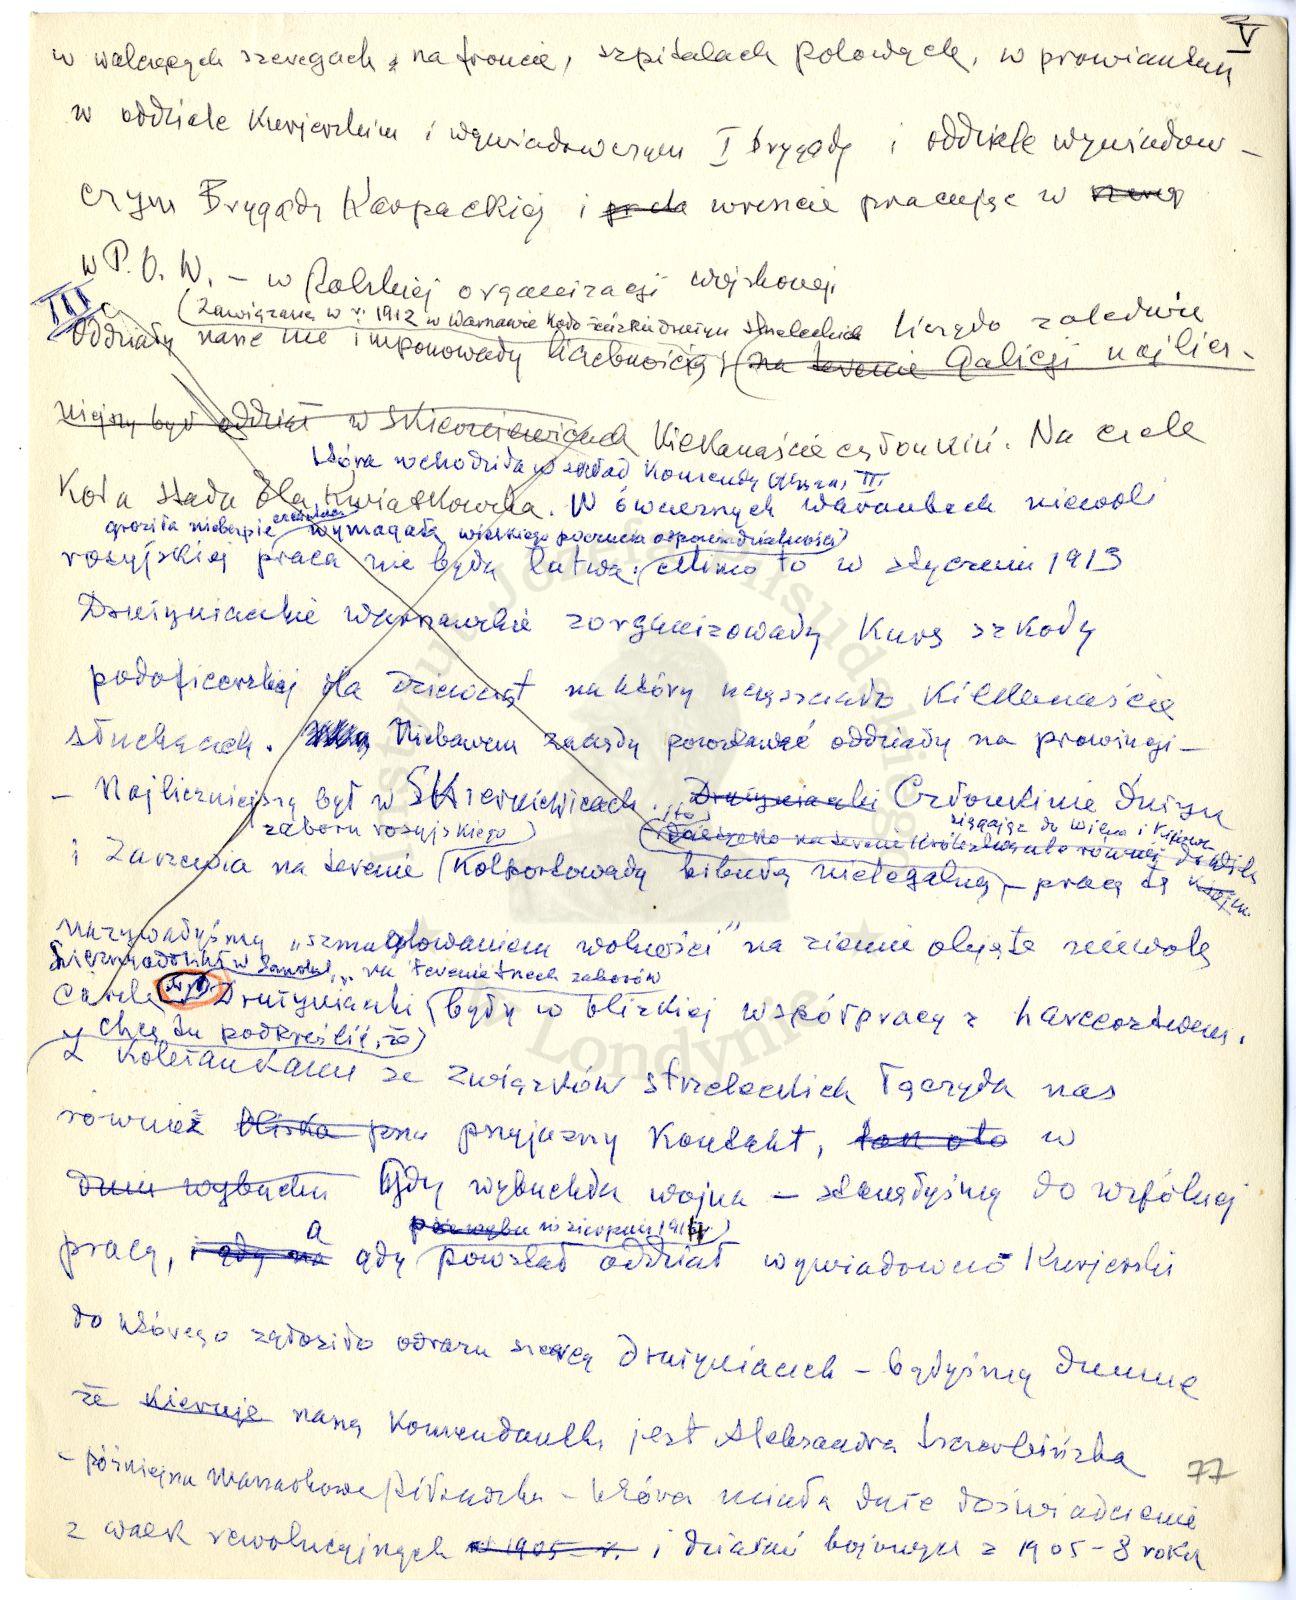 V
w walczących szeregach, na froncie, szpitalach polowych, w prowianturze
w oddziale kurjerskim i wywiadowczym I brygady i oddziale wywiadow-
czym Brygady Karpackiej i wreszcie pracując w
w P.O.W. – w Polskiej organizacji wojskowej.
III
Zawiązane w r. 1912 w Warszawie Koło żeńskie Drużyn Strzeleckich liczyło zaledwie
Oddziały nasze nie imponowały liczebnością (na terenie Galicji najlicz-
niejszy był oddział w Skierniewicach kilkanaście członkiń. Na czele
która wchodziła w skład Komendy Okręgu III
Koła stała Ola Kwiatkowska. W ówczesnych warunkach niewoli
groziła niebezpieczeństwem wymagała wielkiego poczucia odpowiedzialności
rosyjskiej praca nie była łatwa. Mimo to w styczniu 1913
Drużyniaczki warszawskie zorganizowały kurs szkoły
podoficerskiej dla dziewcząt na który uczęszczało kilkanaście
słuchaczek. Niebawem zaczęły powstawać oddziały na prowincji –
– Najliczniejszy był w Skierniewicach. Drużyniaczki Członkinie Drużyn
sięgając do Wilna i Kijowa
zaboru rosyjskiego
i Zarzewia na terenie kolportowały bibułę nielegalną – pracę tę
nazywałyśmy „szmuglowaniem wolności” na ziemie objęte niewolą
na terenie trzech zaborów
Drużyniaczki były w bliskiej współpracy z harcerstwem.
chcę tu podkreślić, że
Z koleżankami ze związków strzeleckich łączył nas
również bliska przyjazny kontakt, w
dniu wybuchu Gdy wybuchła wojna – stanęłyśmy do wspólnej
w sierpniu 1914
pracy, i gdy na a gdy powstał oddział wywiadowczo kurjerski
do którego zgłosiło odrazu szereg drużyniaczek – byłyśmy dumne
że kieruje naszą komendantką jest Aleksandra Szczerbińska
– późniejsza Marszałkowa Piłsudska – która miała duże doświadczenie
77
z walk rewolucyjnych w 1905 r. i działań bojowych z 1905–8 roku
Instytut Józefa Piłsudskiego
w Londynie